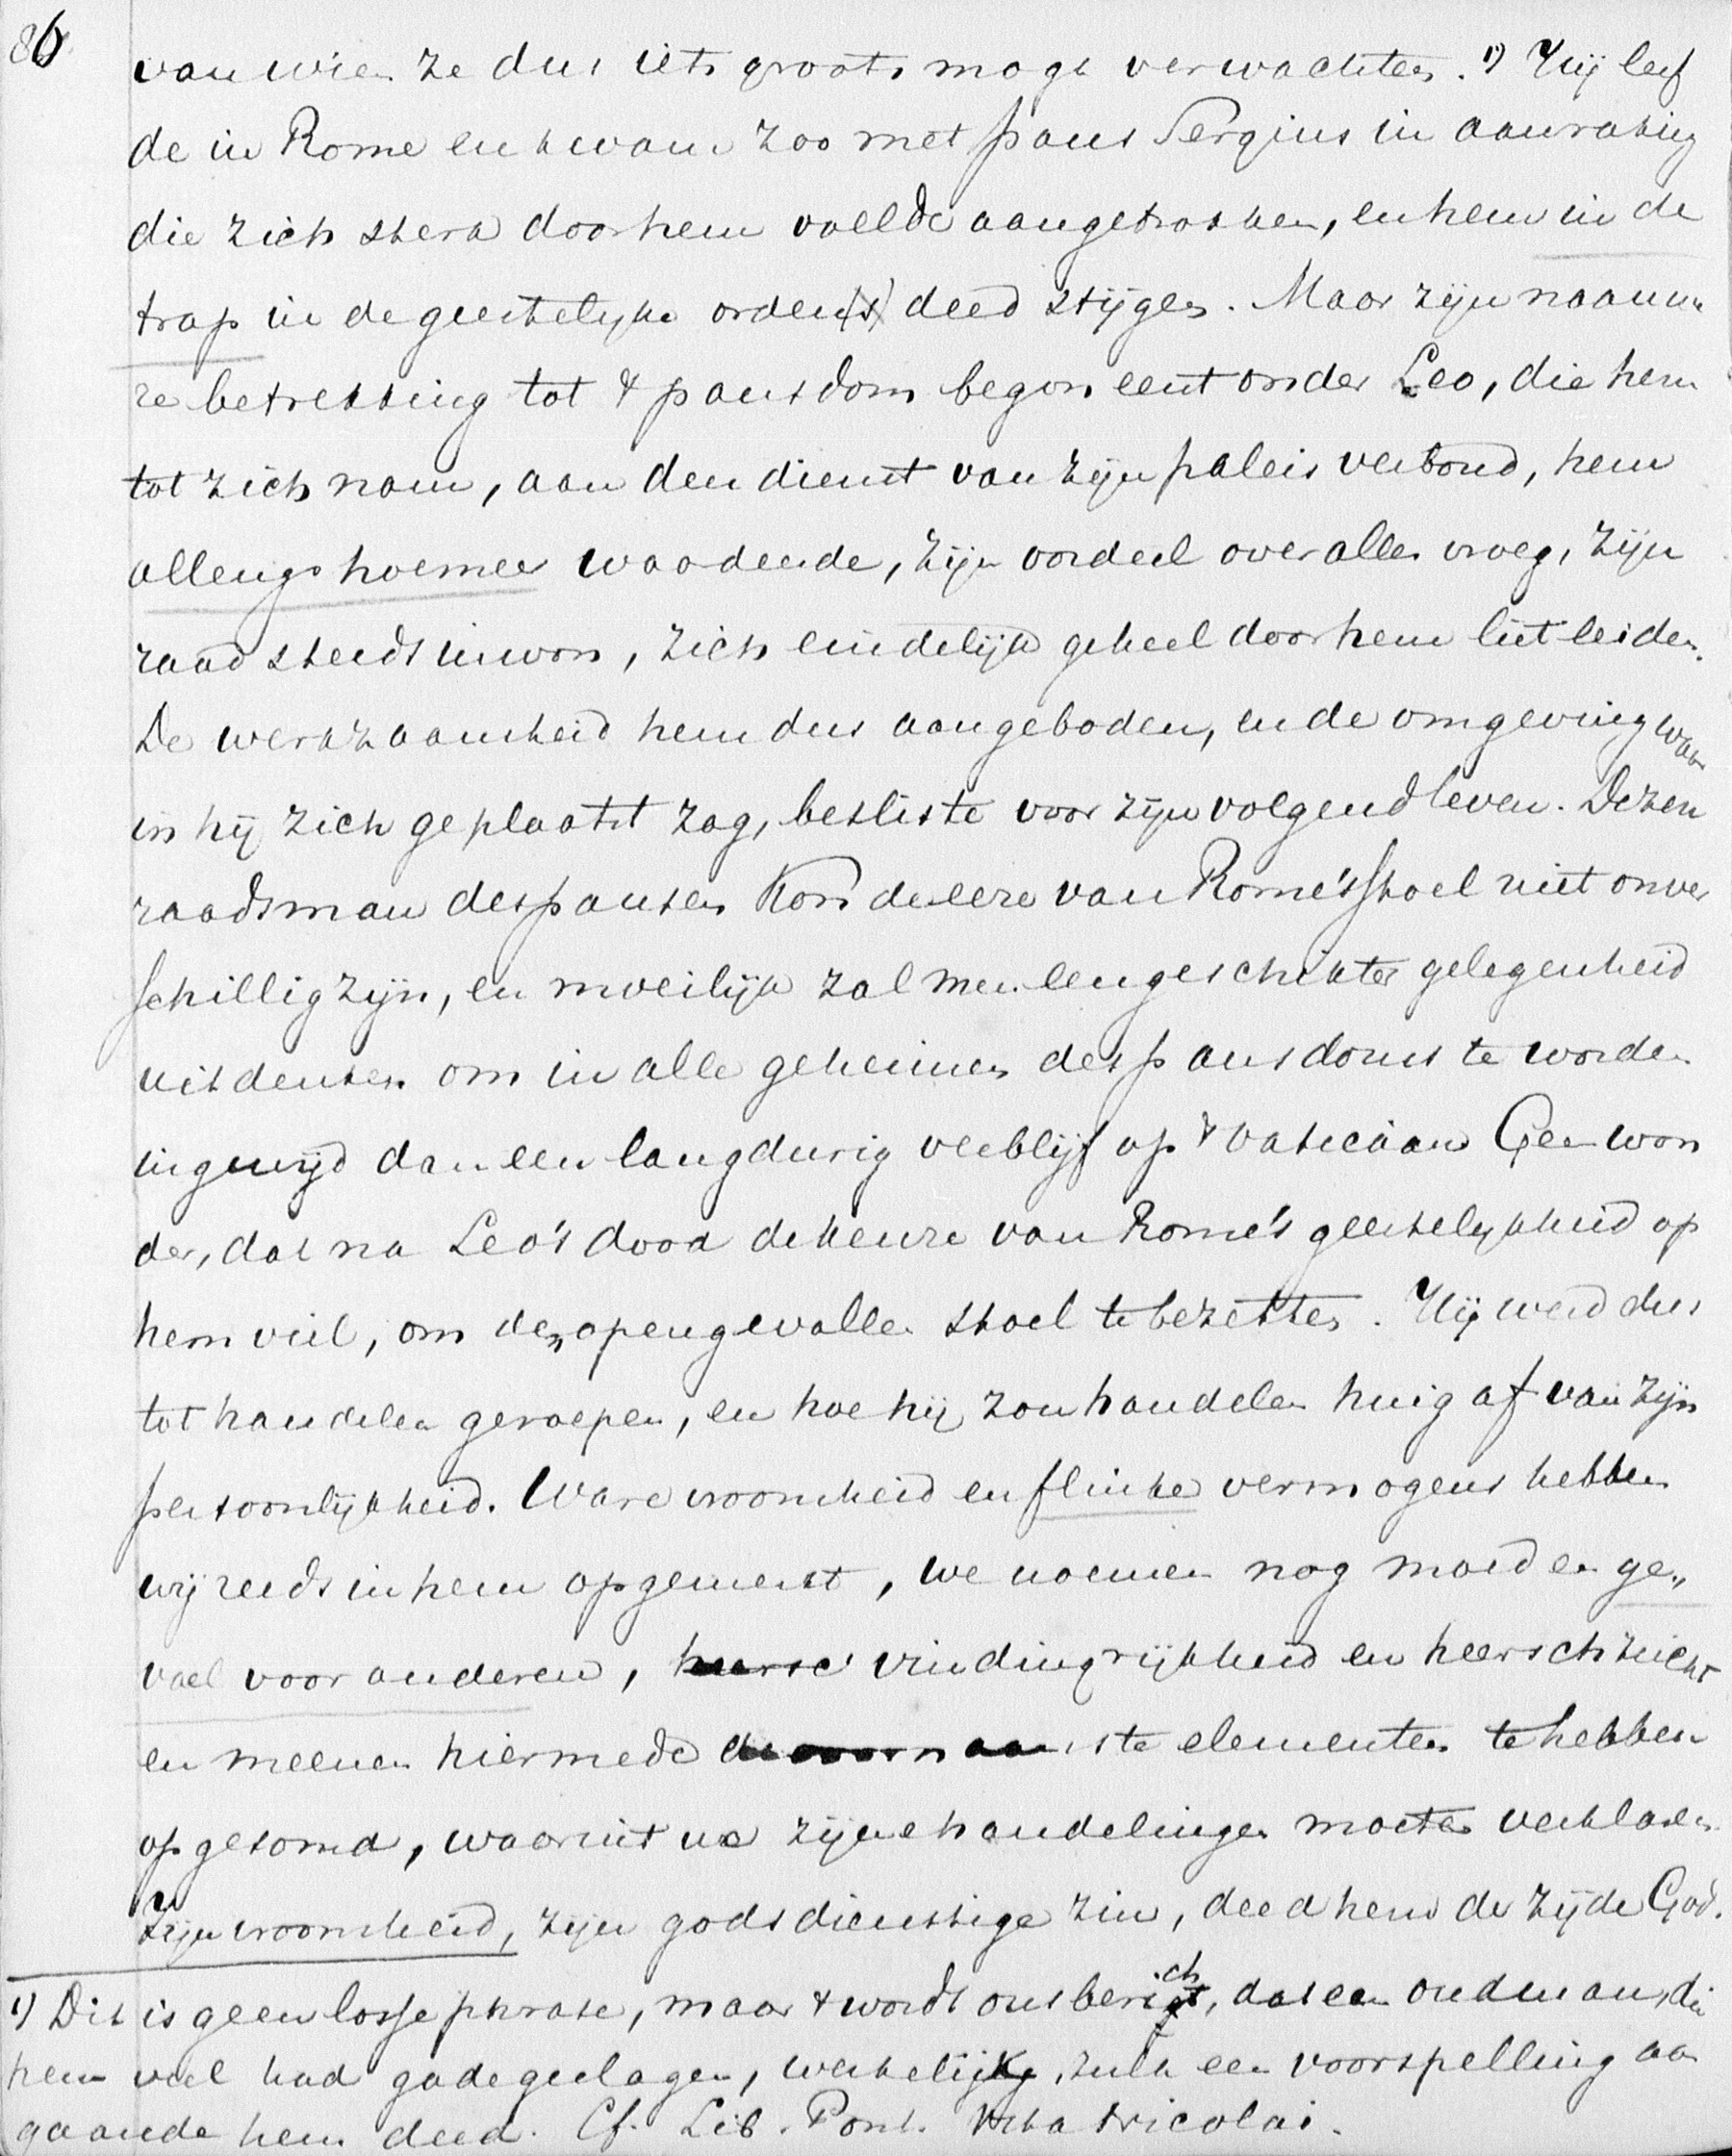 86
van wien ze dus iets groots mogt verwachten. 1) Hij leef
de in Rome en kwam zoo met paus Sergius in aanraking
die zich sterk door hem voelde aangetrokken, en hem in de
trap in de geestelyke orden(s) deed stijgen. Maar zijn naauwe
re betrekking tot 't pausdom begon eerst onder Leo, die hem
tot zich nam, aan den dienst van zijn paleis verbond, hem
allengs hoemeer waardeerde, zijn oordeel over alles vroeg, zijn
raad steeds inwon, zich eindelijk geheel door hem liet leiden.
De werkzaamheid hem dus aangeboden, en de omgeving waar
in hij zich geplaatst zag, besliste voor zijn volgend leven. Dezen
raadsman des pausen kon de eere van Rome's stoel niet onver
schillig zijn, en moeilijk zal men een geschikter gelegenheid
uitdenken om in alle geheimen des pausdoms te worden
ingewijd dan een langdurig verblijf op 't vaticaan Geen won
der, dat na Leo's dood de keuze van Rome's geestelykheid op
hem viel, om den opengevallen stoel te bezetten. Hij werd dus
tot handelen geroepen, en hoe hij zou handelen hing af van zijn
persoonlijkheid. Ware vroomheid en flinke vermogens hebben
wij reeds in hem opgemerkt, we noemen nog moed en ge„
voel voor anderen, heersc vindingrijkheid en heerschzucht
en meenen hiermede de voornaamste elementen te hebben
opgesomd, waaruit we zijne handelingen moeten verklaren.
Zijn vroomheid, zijn godsdienstige zin, deed hem de zijde God.
1) Dit is geen losse phrase, maar 't wordt ons bericht, dat een oud man, die
hem veel had gadegeslagen, werkelijk zulk een voorspelling aan
gaande hem deed. Cf. Lib. Pont. Vita Nicolai.